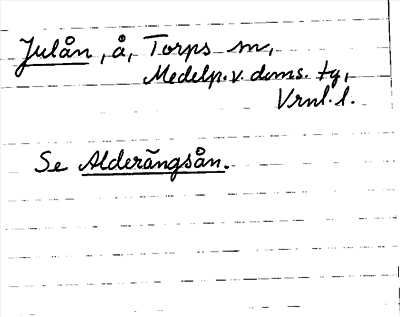 Julån, å, Torps sn,
Medelp. v. doms. tg,
Vrnl. l.
Se Alderängsån.